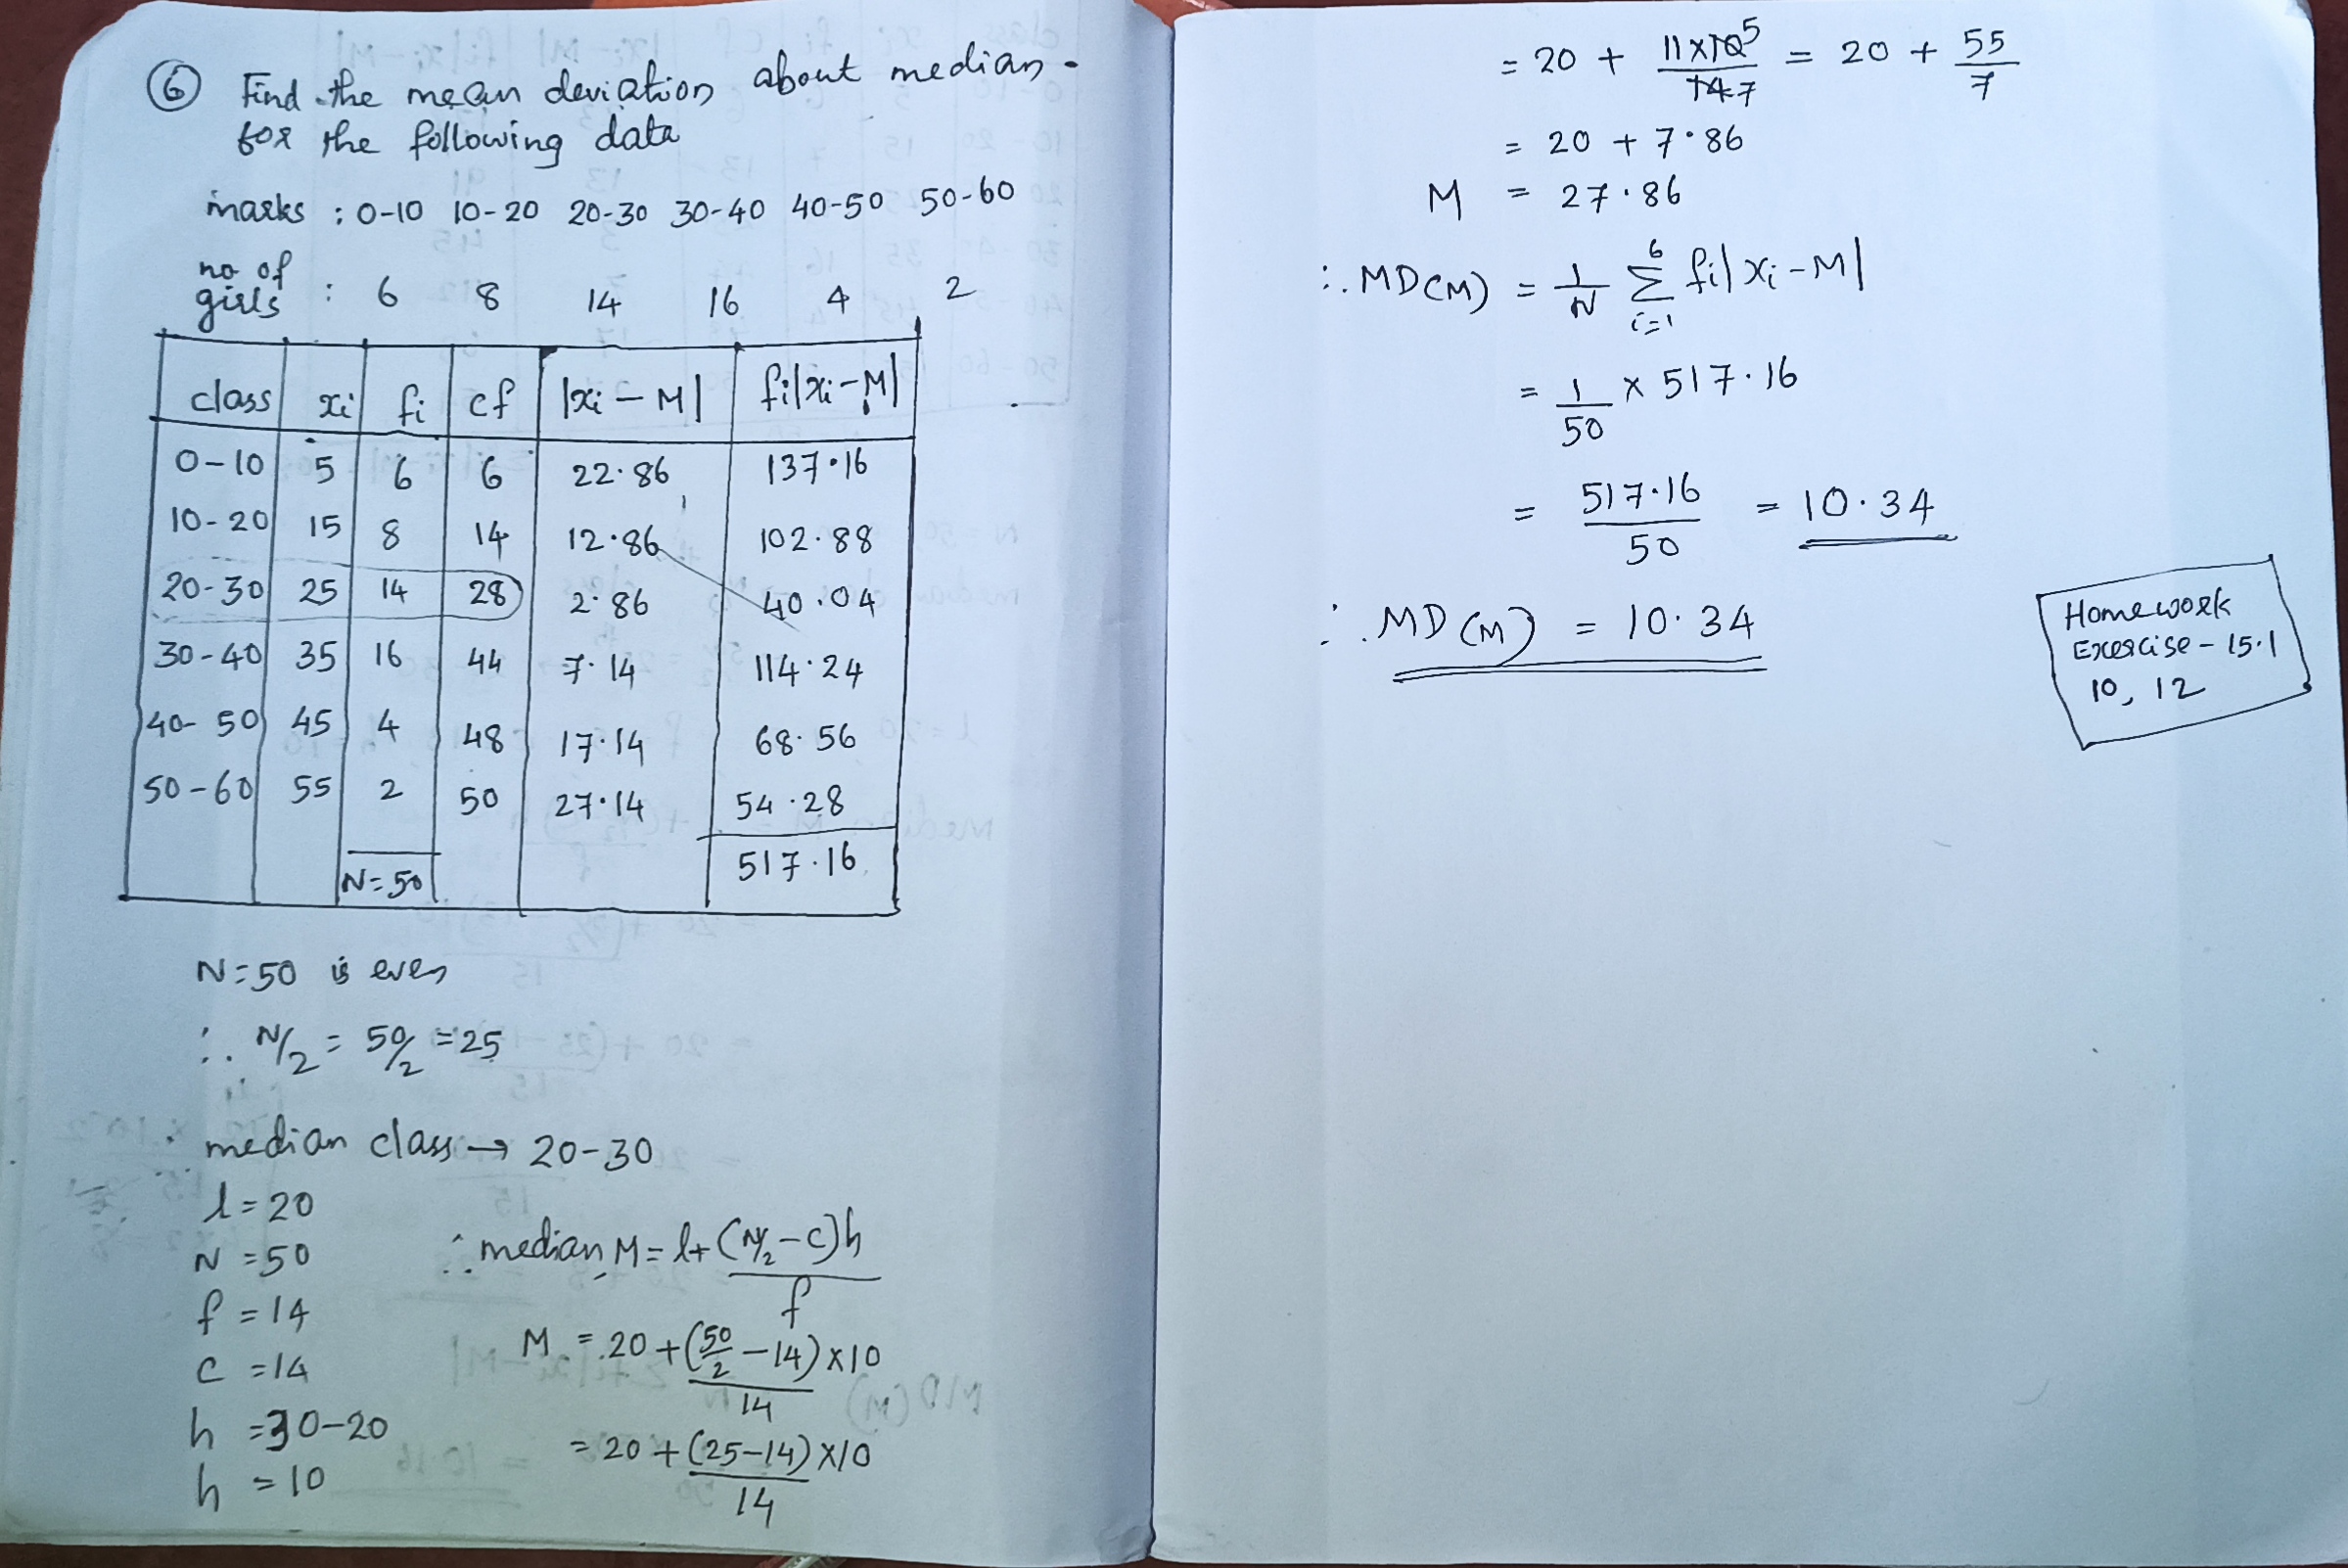 ⑥ Find the mean deviation about median.
for the following data
marks : 0-10 10-20 20-30 30-40 40-50 50-60
no of
girls : 6 8 14 16 4 2
class xi fi cf |xi - M| fi|xi-M|
0-10 5 6 6 22.86 137.16
10-20 15 8 14 12.86 102.88
20-30 25 14 28 2.86 40.04
30-40 35 16 44 7.14 114.24
40-50 45 4 48 17.14 68.56
50-60 55 2 50 27.14 54.28
N=50 517.16
N=50 is even
∴ N/2 = 50/2 = 25
∴ median class → 20-30
l = 20
N = 50
f = 14
c = 14
h = 30-20
h = 10
∴ median M = l + (N/2 - c)h / f
M = 20 + (50/2 - 14) x 10 / 14
= 20 + (25-14) x 10 / 14
= 20 + 11 x 10 5 / 14 7 = 20 + 55/7
= 20 + 7.86
M = 27.86
∴ MD(M) = 1/N 6 Σ i=1 fi|xi - M|
= 1/50 x 517.16
= 517.16/50 = 10.34
∴ MD(M) = 10.34
Homework
Exercise - 15.1
10, 12